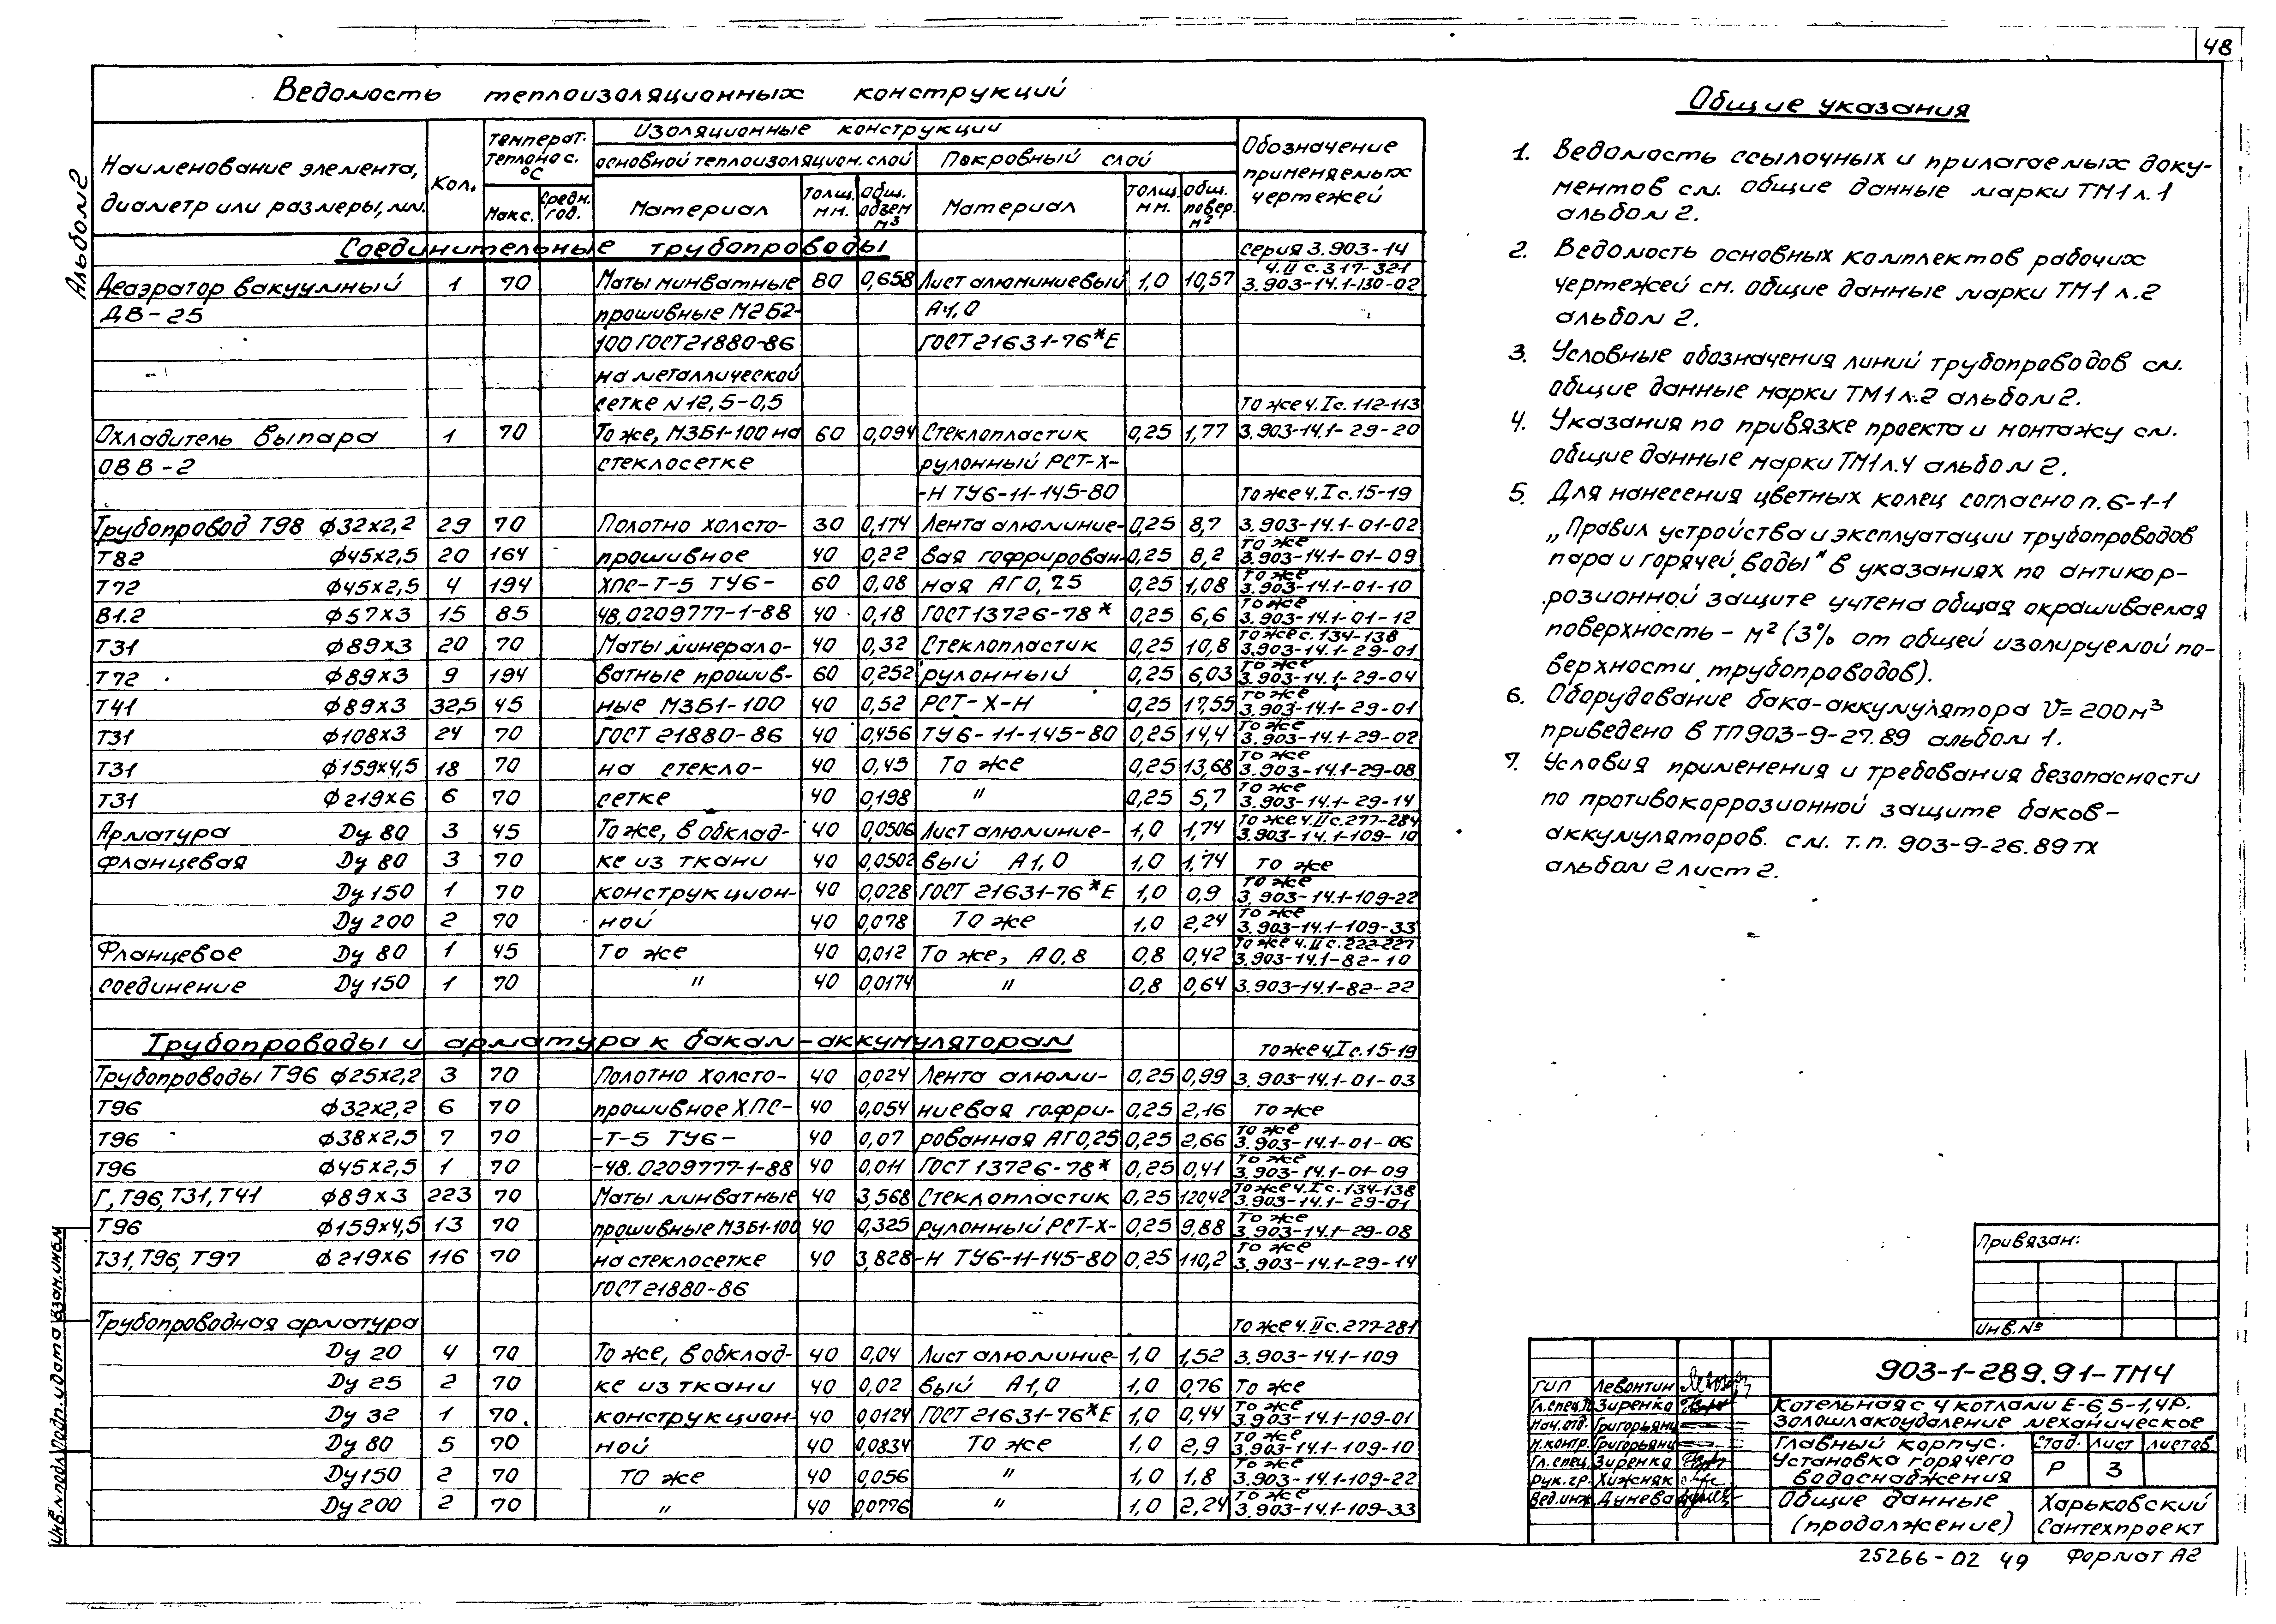 48
Альбом 2
Ведомость теплоизоляционных конструкций
Наименование элемента, диаметр или размеры, мм.
Кол.
Температ. теплонос. °С
Макс.
Средн. год.
Изоляционные конструкции
основной теплоизоляцион. слой
Материал
Толщ. мм.
Общ. объем м3
Покровный слой
Материал
Толщ. мм.
Общ. повер. м2
Обозначение применяемых чертежей
Соединительные трубопроводы
серия 3.903-14
ч. II с. 317-321
Деаэратор вакуумный 1 70 Маты минватные 80 0,658 Лист алюминиевый 1,0 10,57 3.903-14.1-130-02
ДВ-25 прошивные М2Б2- А4,0
100 ГОСТ 21880-86 ГОСТ 21631-76*Е
на металлической
сетке N12,5-0,5 то же ч. I с. 112-113
Охладитель выпара 1 70 То же, М3Б1-100 на 60 0,094 Стеклопластик 0,25 1,77 3.903-14.1-29-20
ОВВ-2 стеклосетке рулонный РСТ-Х-
-Н ТУ6-11-145-80 то же ч. I с. 15-19
Трубопровод Т98 ф32х2,2 29 70 Полотно холсто- 30 0,174 Лента алюминие- 0,25 8,7 3.903-14.1-01-02
Т82 ф45х2,5 20 164 прошивное 40 0,22 вая гофрирован- 0,25 8,2 то же 3.903-14.1-01-09
Т72 ф45х2,5 4 194 ХПС-Т-5 ТУ6- 60 0,08 ная АГ0,25 0,25 1,08 то же 3.903-14.1-01-10
В1.2 ф57х3 15 85 48.0209777-1-88 40 0,18 ГОСТ 13726-78* 0,25 6,6 то же 3.903-14.1-01-12
Т31 ф89х3 20 70 Маты минерало- 40 0,32 Стеклопластик 0,25 10,8 то же с. 134-138 3.903-14.1-29-01
Т72 ф89х3 9 194 ватные прошив- 60 0,252 рулонный 0,25 6,03 то же 3.903-14.1-29-04
Т41 ф89х3 32,5 45 ные М3Б1-100 40 0,52 РСТ-Х-Н 0,25 17,55 то же 3.903-14.1-29-01
Т31 ф108х3 24 70 ГОСТ 21880-86 40 0,456 ТУ6-11-145-80 0,25 14,4 то же 3.903-14.1-29-02
Т31 ф159х4,5 18 70 на стекло- 40 0,45 То же 0,25 13,68 то же 3.903-14.1-29-08
Т31 ф219х6 6 70 сетке 40 0,198 " 0,25 5,7 то же 3.903-14.1-29-14
Арматура Dу 80 3 45 То же, в обклад- 40 0,0506 Лист алюминие- 1,0 1,74 то же ч. II с. 277-284 3.903-14.1-109-10
фланцевая Dу 80 3 70 ке из ткани 40 0,0502 вый А1,0 1,0 1,74 то же
Dу 150 1 70 конструкцион- 40 0,028 ГОСТ 21631-76*Е 1,0 0,9 то же 3.903-14.1-109-22
Dу 200 2 70 ной 40 0,078 То же 1,0 2,24 то же 3.903-14.1-109-33
Фланцевое Dу 80 1 45 То же 40 0,012 То же, А0,8 0,8 0,42 то же ч. II с. 222-227 3.903-14.1-82-10
соединение Dу 150 1 70 " 40 0,0174 " 0,8 0,64 3.903-14.1-82-22
Трубопроводы и арматура к бакам-аккумуляторам
то же ч. I с. 15-19
Трубопроводы Т96 ф25х2,2 3 70 Полотно холсто- 40 0,024 Лента алюми- 0,25 0,99 3.903-14.1-01-03
Т96 ф32х2,2 6 70 прошивное ХПС- 40 0,054 ниевая гофри- 0,25 2,16 то же
Т96 ф38х2,5 7 70 -Т-5 ТУ6- 40 0,07 рованная АГ0,25 0,25 2,66 то же 3.903-14.1-01-06
Т96 ф45х2,5 1 70 -48.0209777-1-88 40 0,011 ГОСТ 13726-78* 0,25 0,41 то же 3.903-14.1-01-09
Г, Т96, Т31, Т41 ф89х3 223 70 Маты минватные 40 3,568 Стеклопластик 0,25 120,42 то же ч. I с. 134-138 3.903-14.1-29-01
Т96 ф159х4,5 13 70 прошивные М3Б1-100 40 0,325 рулонный РСТ-Х- 0,25 9,88 то же 3.903-14.1-29-08
Т31, Т96, Т97 ф219х6 116 70 на стеклосетке 40 3,828 -Н ТУ6-11-145-80 0,25 110,2 то же 3.903-14.1-29-14
ГОСТ 21880-86
Трубопроводная арматура то же ч. II с. 277-281
Dу 20 4 70 То же, в обклад- 40 0,04 Лист алюминие- 1,0 1,52 3.903-14.1-109
Dу 25 2 70 ке из ткани 40 0,02 вый А1,0 1,0 0,76 то же
Dу 32 1 70 конструкцион- 40 0,0124 ГОСТ 21631-76*Е 1,0 0,44 то же 3.903-14.1-109-01
Dу 80 5 70 ной 40 0,0834 То же 1,0 2,9 то же 3.903-14.1-109-10
Dу 150 2 70 то же 40 0,056 " 1,0 1,8 то же 3.903-14.1-109-22
Dу 200 2 70 " 40 0,0776 " 1,0 2,24 то же 3.903-14.1-109-33
Общие указания
1. Ведомость ссылочных и прилагаемых доку-
ментов см. общие данные марки ТМ1 л.1
альбом 2.
2. Ведомость основных комплектов рабочих
чертежей см. общие данные марки ТМ1 л.2
альбом 2.
3. Условные обозначения линий трубопроводов см.
общие данные марки ТМ1 л.2 альбом 2.
4. Указания по привязке проекта и монтажу см.
общие данные марки ТМ1 л.4 альбом 2.
5. Для нанесения цветных колец согласно п. 6-1-1
„Правил устройства и эксплуатации трубопроводов
пара и горячей воды" в указаниях по антикор-
розионной защите учтена общая окрашиваемая
поверхность - м² (3% от общей изолируемой по-
верхности трубопроводов).
6. Оборудование бака-аккумулятора V=200м³
приведено в ТП903-9-27.89 альбом 1.
7. Условия применения и требования безопасности
по противокоррозионной защите баков-
аккумуляторов. см. т.п. 903-9-26.89 тх
альбом 2 лист 2.
Привязан:
Инв. №
903-1-289.91-ТМ4
Котельная с 4 котлами Е-6,5-1,4Р.
Золошлакоудаление механическое
Главный корпус.
Установка горячего
водоснабжения
Стад. Лист Листов
Р 3
Общие данные
(продолжение)
Харьковский
Сантехпроект
ГИП Левонтин
Гл. спец. Зиренко
Нач. отд. Григорьянц
Н. контр. Григорьянц
Гл. спец. Зиренко
Рук. гр. Хижняк
Вед. инж. Дунева
Инв. № подл. Подп. и дата Взам. инв. №
25266-02 49 Формат А2